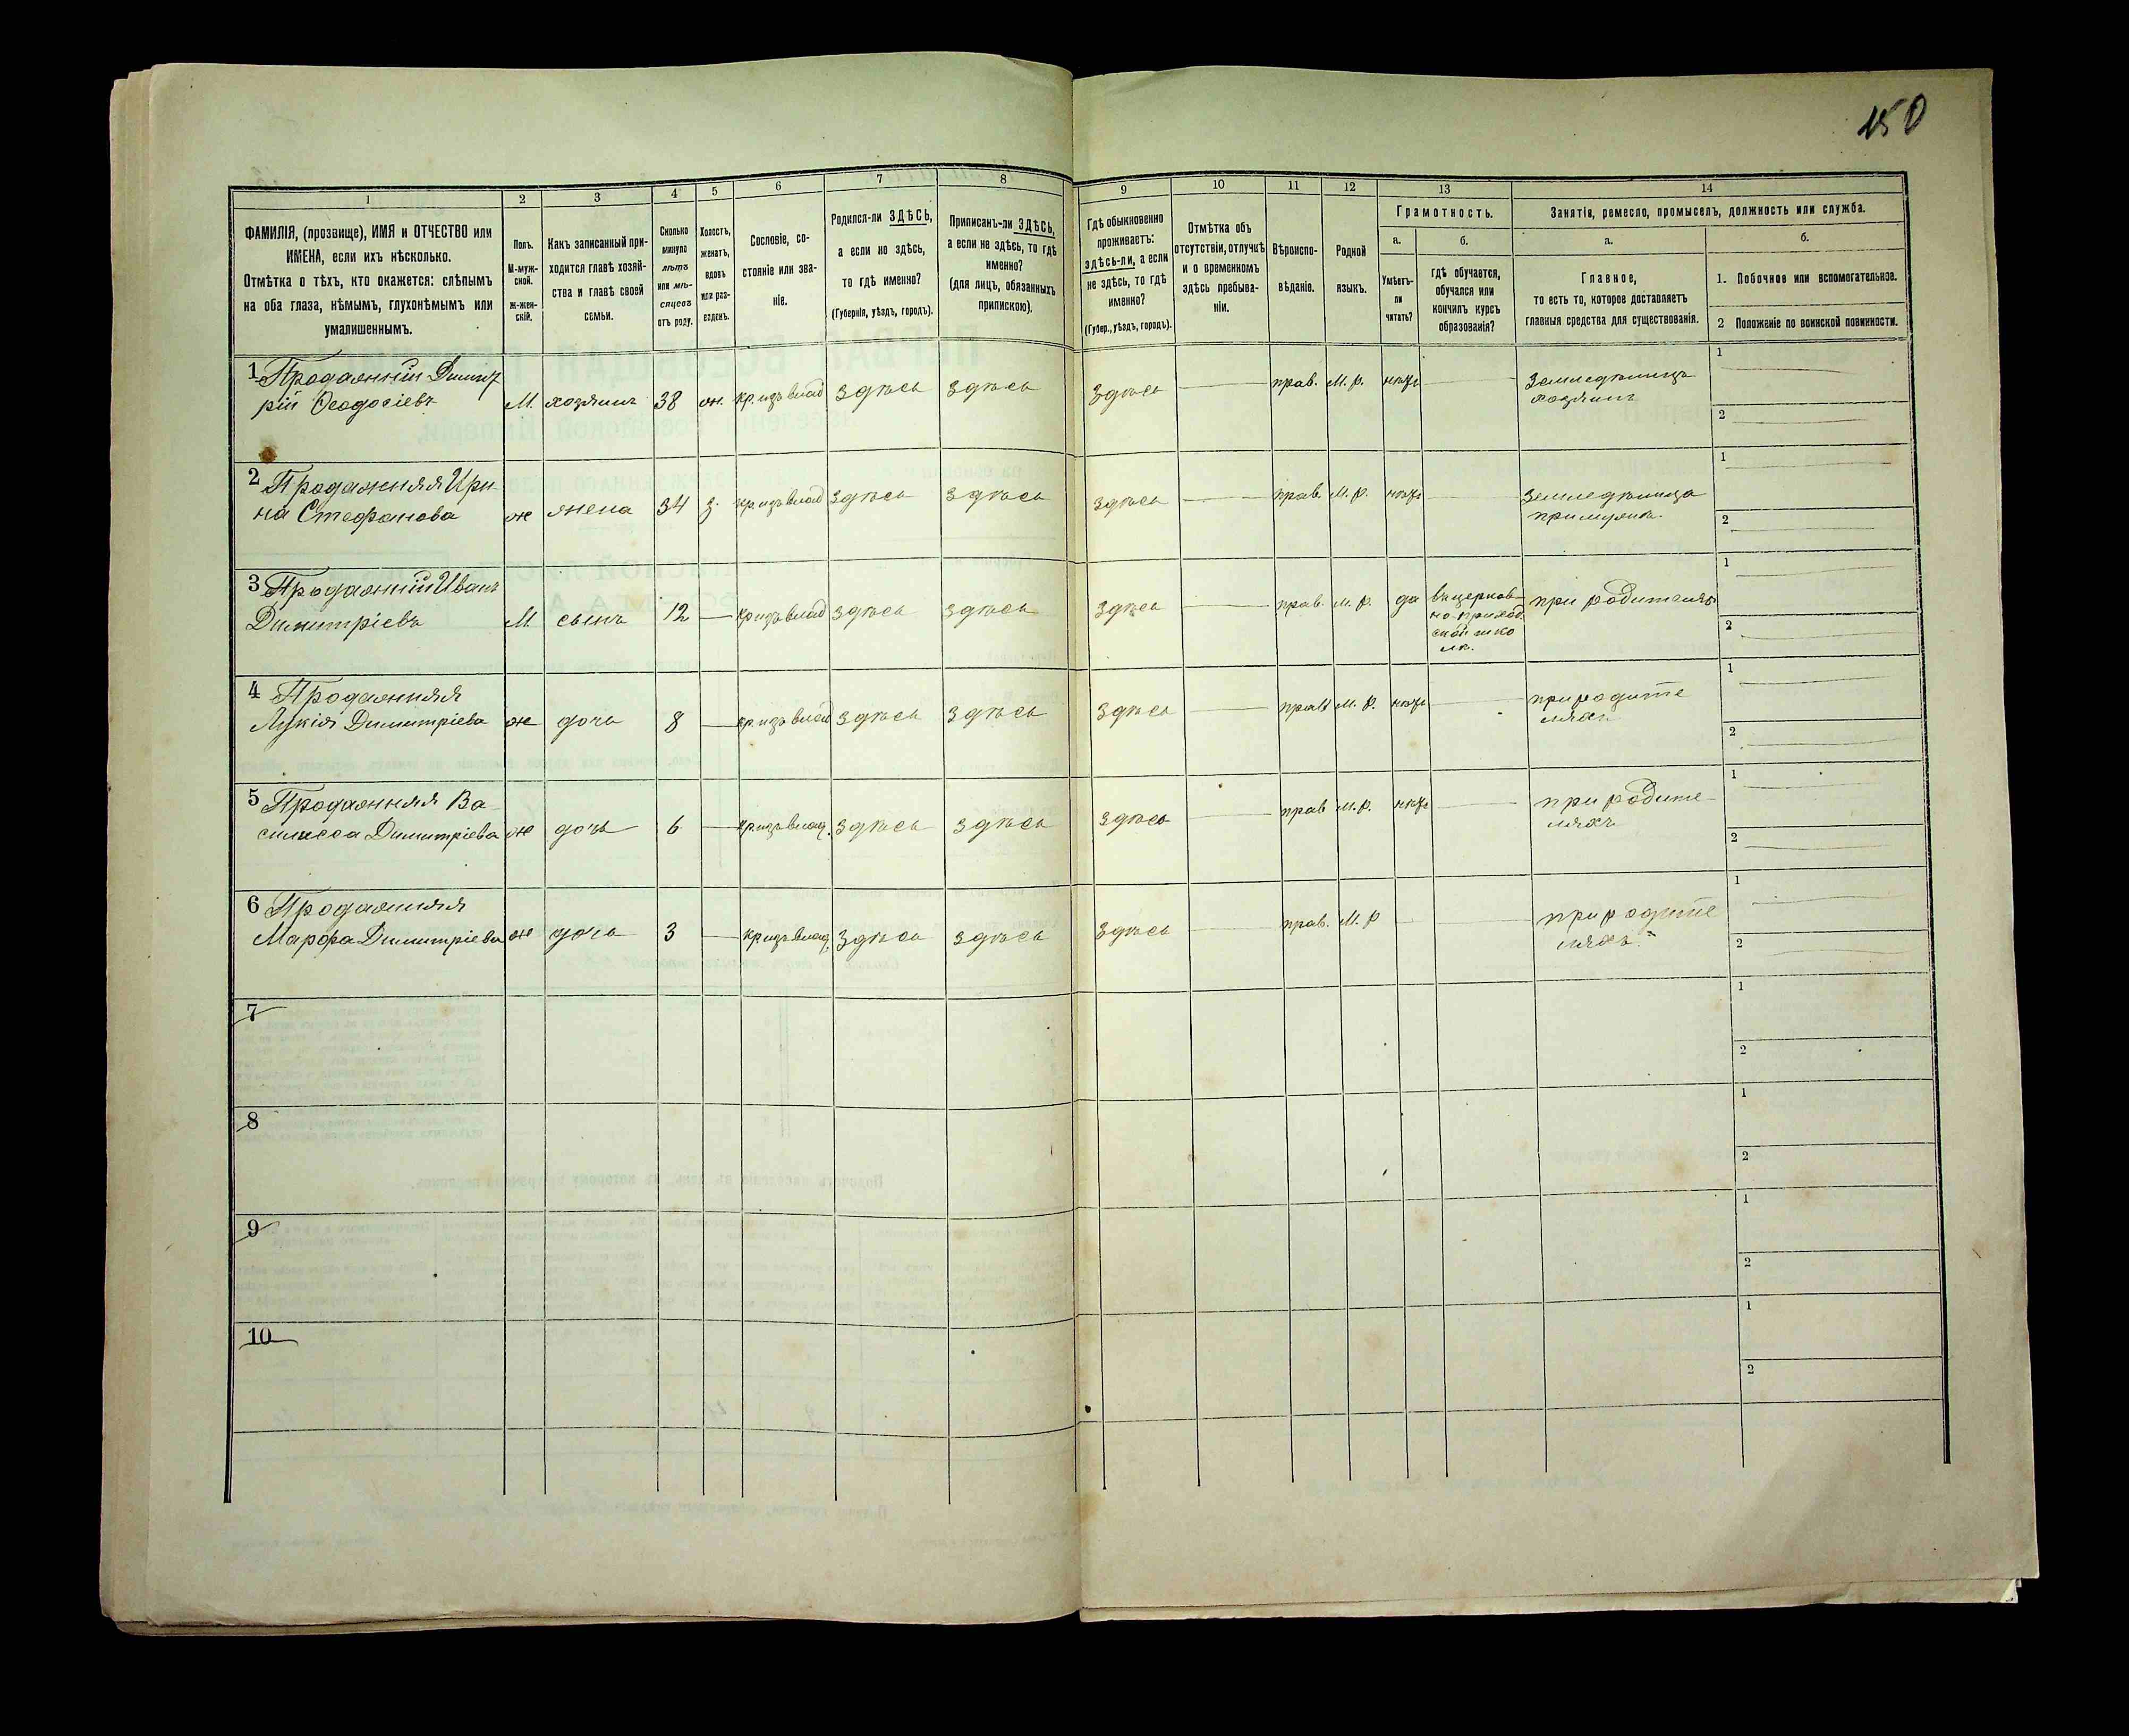 150
1 2 3 4 5 6 7 8 9 10 11 12 13 14
ФАМИЛІЯ, (прозвище), ИМЯ и ОТЧЕСТВО или
ИМЕНА, если ихъ нѣсколько.
Отмѣтка о тѣхъ, кто окажется: слѣпымъ
на оба глаза, нѣмымъ, глухонѣмымъ или
умалишеннымъ.
Полъ.
М-муж-
ской.
Ж-жен-
скій.
Какъ записанный при-
ходится главѣ хозяй-
ства и главѣ своей
семьи.
Сколько
минуло
лѣтъ
или мѣ-
сяцевъ
отъ роду.
Холостъ,
женатъ,
вдовъ
или раз-
веденъ.
Сословіе, со-
стояніе или зва-
ніе.
Родился-ли ЗДѢСЬ,
а если не здѣсь,
то гдѣ именно?
(Губернія, уѣздъ, городъ).
Приписанъ-ли ЗДѢСЬ,
а если не здѣсь, то гдѣ
именно?
(для лицъ, обязанныхъ
припискою).
Гдѣ обыкновенно
проживаетъ:
здѣсь-ли, а если
не здѣсь, то гдѣ
именно?
(Губер., уѣздъ, городъ).
Отмѣтка объ
отсутствіи, отлучкѣ
и о временномъ
здѣсь пребыва-
ніи.
Вѣроиспо-
вѣданіе.
Родной
языкъ.
Грамотность.
а.
Умѣетъ-
ли
читать?
б.
гдѣ обучается,
обучался или
кончилъ курсъ
образованія?
Занятія, ремесло, промыселъ, должность или служба.
а.
Главное,
то есть то, которое доставляетъ
главныя средства для существованія.
б.
1. Побочное или вспомогательное.
2 Положеніе по воинской повинности.
1 Продажній Димит
рій Ѳеодосіевъ М. хозяинъ 38 ж. кр. изъ влад здѣсь здѣсь здѣсь прав. М. р. нѣтъ земледѣлецъ
хозяинъ
1
2
2 Продажняя Ири-
на Стефанова ж жена 34 з. кр. изъ влад здѣсь здѣсь здѣсь прав. М. р. нѣтъ земледѣлица
при мужѣ.
1
2
3 Продажній Иванъ
Димитріевъ М. сынъ 12 кр изъ влад здѣсь здѣсь здѣсь прав. М. р. да въ церков-
но-приход
ской шко
лѣ.
при родителяхъ
1
2
4 Продажняя
Лукія Димитріева ж дочь 8 кр. изъ влад здѣсь здѣсь здѣсь прав М. р. нѣтъ при родите
ляхъ
1
2
5 Продажняя Ва-
силисса Димитріева ж дочь 6 кр. изъ влад. здѣсь здѣсь здѣсь прав М. р. нѣтъ при родите-
ляхъ
1
2
6 Продажняя
Марфа Димитріева ж дочь 3 кр изъ влад. здѣсь здѣсь здѣсь прав. М. р при родите
ляхъ.
1
2
7
1
2
8
1
2
9
1
2
10
1
2